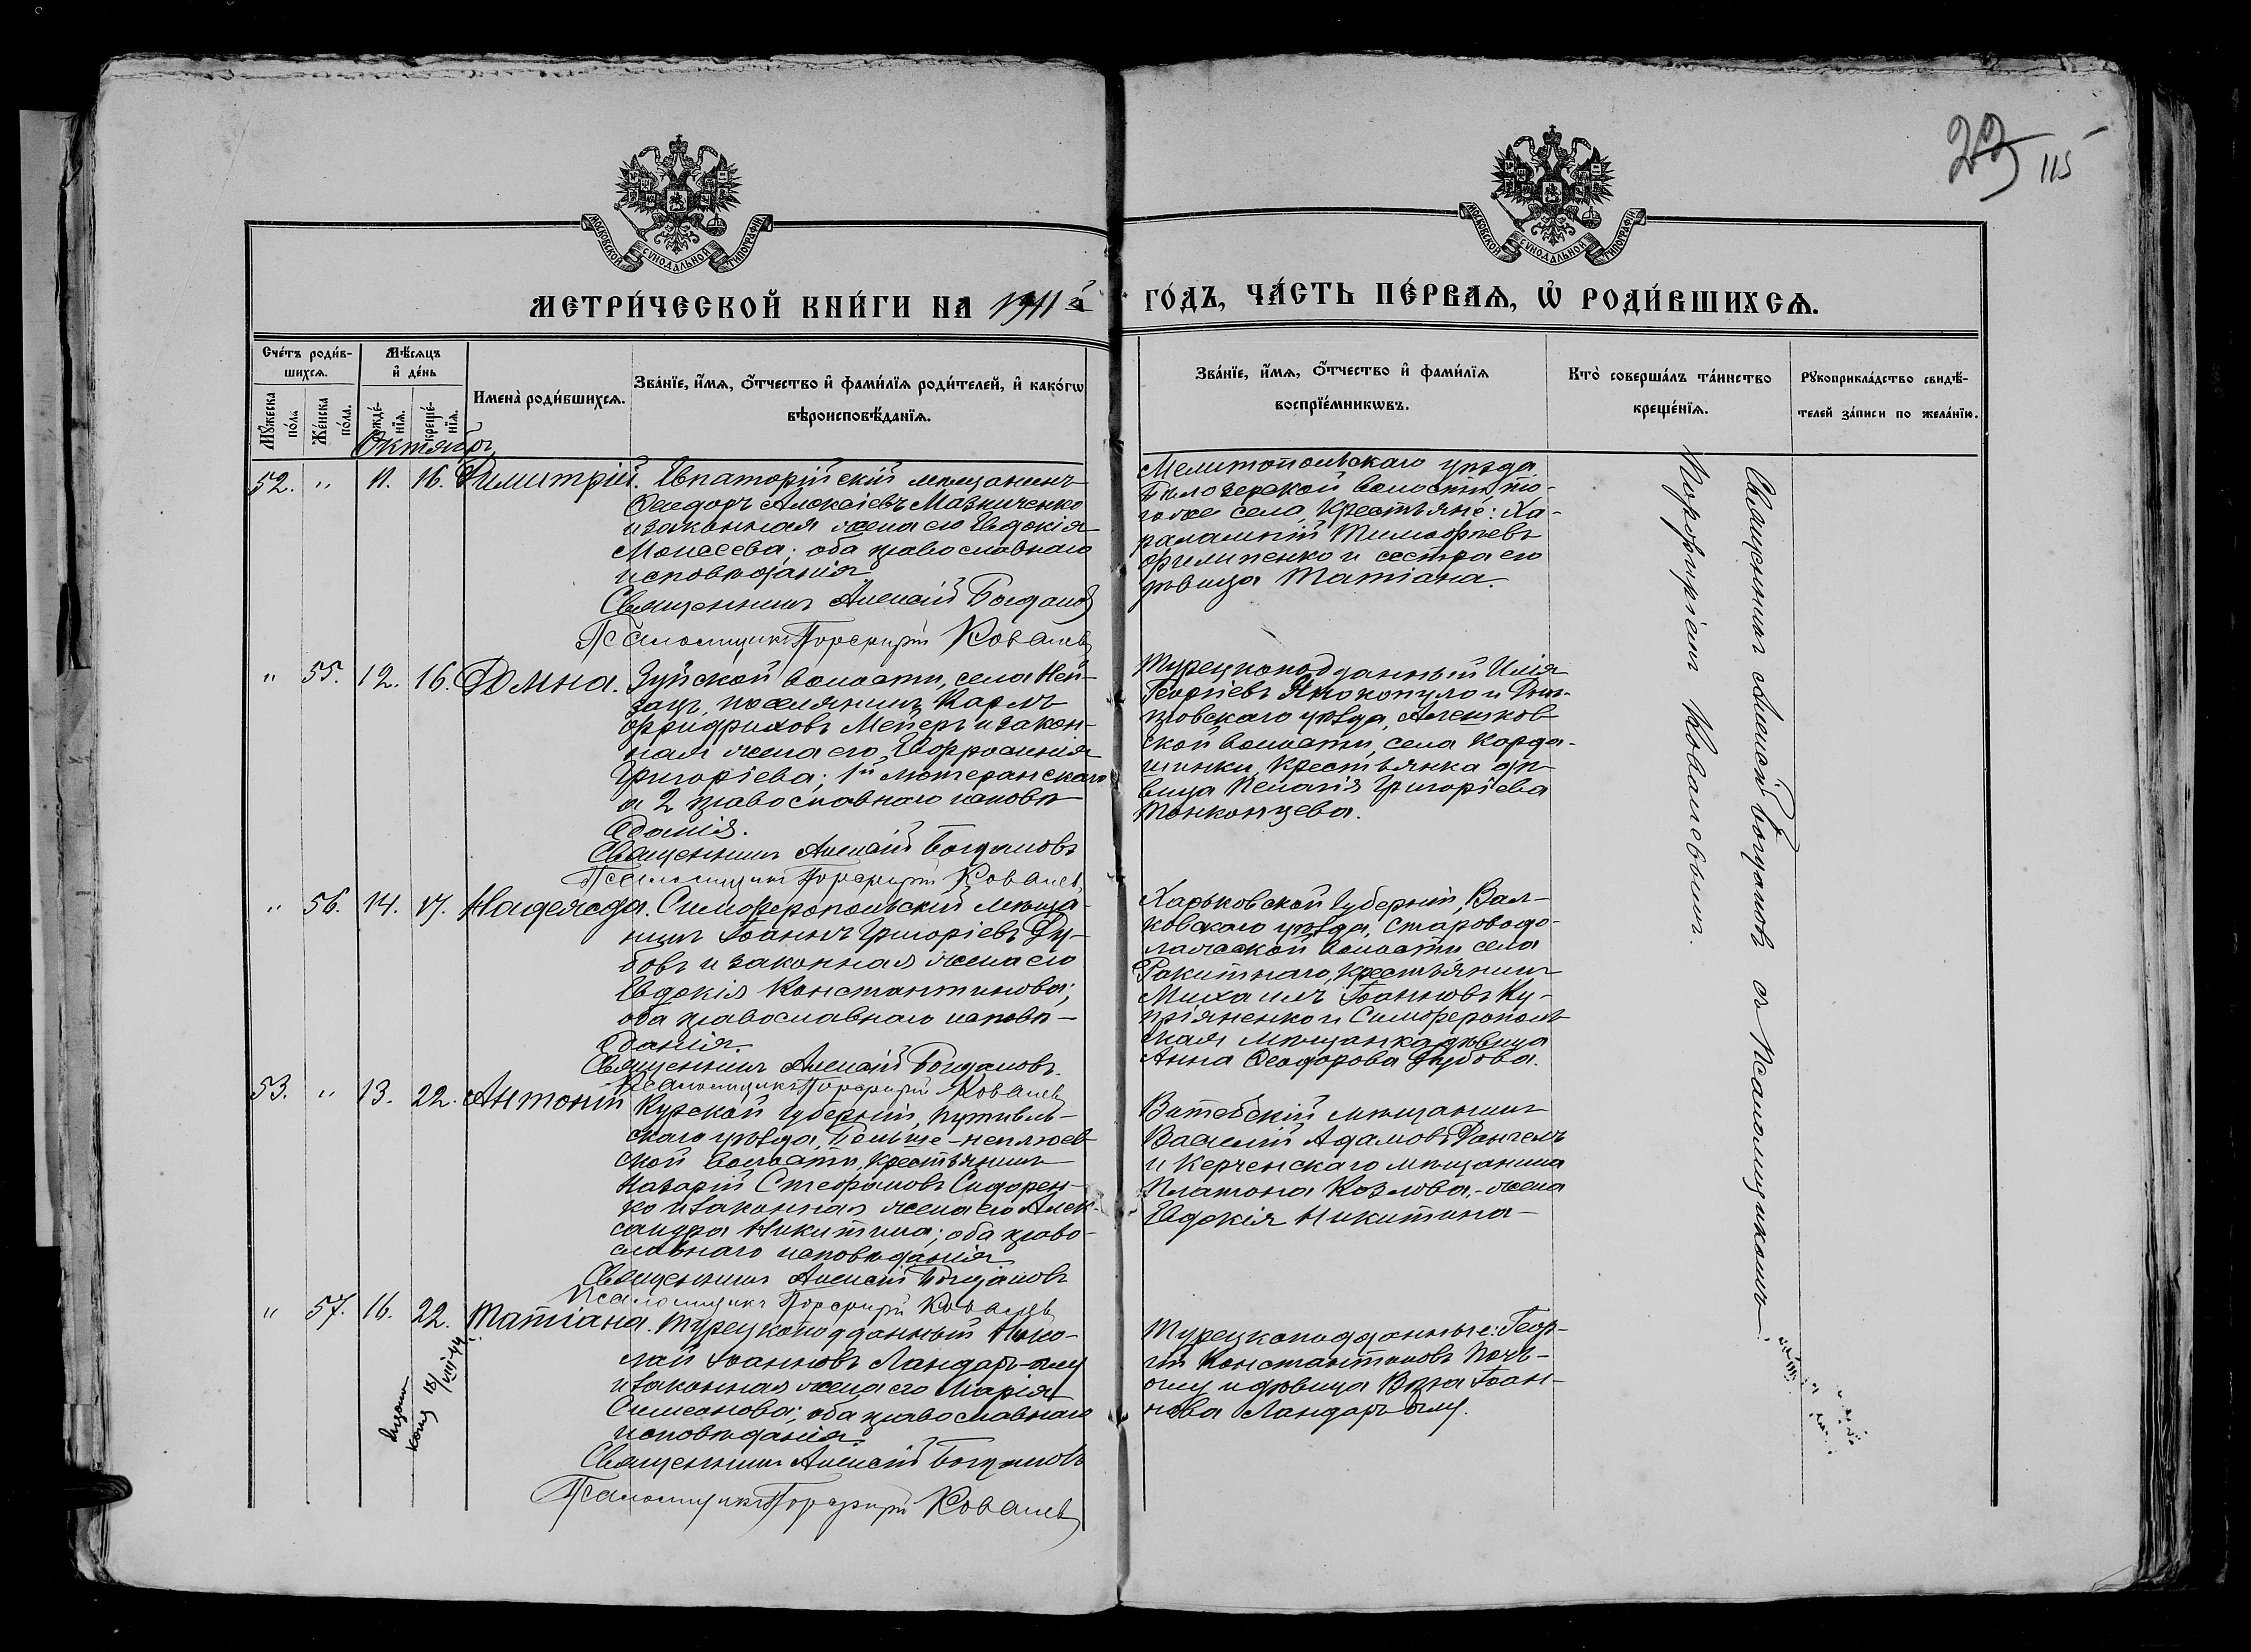 23 115
МОСКОВСКОЙ СѴНОДАЛЬНОЙ ТИПОГРАФІИ
МОСКОВСКОЙ СѴНОДАЛЬНОЙ ТИПОГРАФІИ
МЕТРИ́ЧЕСКОЙ КНИ́ГИ НА 1911й
ГО́ДЪ, ЧА́СТЬ ПЕ́РВАѦ, Ѡ҆ РОДИ́ВШИХСѦ.
Сче́тъ роди́в-
шихсѧ.
Мꙋ́жеска по́ла.
Же́нска по́ла.
Мѣ́сѧцъ
и҆ де́нь
рожде́-
нїѧ.
креще́-
нїѧ.
Имена̀ роди́вшихсѧ.
Зва́нїе, и҆́мѧ, ѻ҆́тчество и҆ фами́лїѧ роди́телей, и҆ како́гѡ
вѣроисповѣ́данїѧ.
Зва́нїе, и҆́мѧ, ѻ҆́тчество и҆ фами́лїѧ
воспрїе́мникѡвъ.
Кто̀ соверша́лъ та́инство
креще́нїѧ.
Рꙋкоприкла́дство свидѣ́-
телей за́писи по жела́нїю.
Октябрь
52. " 11. 16. Димитрій. Евпаторійскій мѣщанинъ
Ѳеодоръ Алексіевъ
и законная жена его Евдокія
Моисеева; оба православнаго
исповѣданія.
Священникъ Алексій Богдановъ
Псаломщикъ Порфирій Ковалев
Мелитопольскаго уѣзда,
Бѣлозерской волости, то-
гоже села, крестьяне: Ха-
ралампій Тимофѣевъ
Филипенко и сестра его
дѣвица Татіана.
" 55. 12. 16. Домна. Зуйской волости, села Ней-
зацъ, поселянинъ Карлъ
Фридриховъ Мейеръ и закон-
ная жена его Евфросинія
Григоріева; 1й лютеранскаго
а 2 православнаго исповѣ-
данія.
Священникъ Алексій Богдановъ
Псаломщикъ Порфирій Ковалев
Турецкоподданный Илія
Георгіевъ и Днѣ-
провскаго уѣзда, Алешков-
ской волости, села Корда-
шинки, крестьянка дѣ-
вица Пелагія Григоріева
Тонконцева.
" 56. 14. 17. Надежда. Симферопольскій мѣща-
нинъ Іоаннъ Григоріевъ Ду-
бовъ и законная жена его
Евдокія Константинова;
оба православнаго исповѣ-
данія.
Священникъ Алексій Богдановъ.
Псаломщикъ Порфирій Ковалев
Харьковской губерніи, Вал-
ковскаго уѣзда, Староводо-
лажской волости села
Ракитнаго, крестьянинъ
Михаилъ Іоанновъ Ку-
пріяненко и Симферополь-
ская мѣщанка дѣвица
Анна Ѳеодорова Дубова.
53. " 13. 22. Антоній Курской губерніи, Путивль-
скаго уѣзда, Больше-неплюев-
ской волости, крестьянинъ
Назарій Стефановъ Сидорен-
ко и законная жена его Алек-
сандра Никитина; оба право-
славнаго исповѣданія
Священникъ Алексій Богдановъ
Псаломщикъ Порфирій Ковалев
Витебскій мѣщанинъ
Василій Адамовъ
и Керченскаго мѣщанина
Платона Козлова, - жена
Евдокія Никитина -
" 57. 16. 22. Татіана. Турецкоподданный Нико-
лай Іоанновъ Ландаръ-оглу
и законная жена его Марія
Симеонова; оба православнаго
исповѣданія.
Священникъ Алексій Богдановъ
Псаломщикъ Порфирій Ковалев
Турецкоподданные: Геор-
гій Константиновъ
оглу и дѣвица Вѣра Іоан-
нова Ландаръ-оглу.
Священникъ Алексій Богдановъ съ Псаломщикомъ
Порфиріемъ Ковалевымъ.